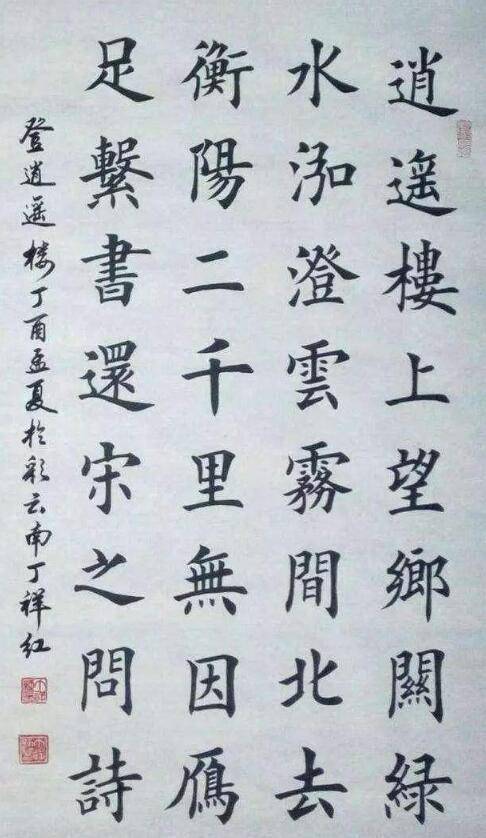 逍遥樓上望鄉關緑
水泓澄雲霧間北去
衡陽二千里無因鴈
足繫書還宋之問詩
登逍遥楼丁酉孟夏於彩云南丁祥红